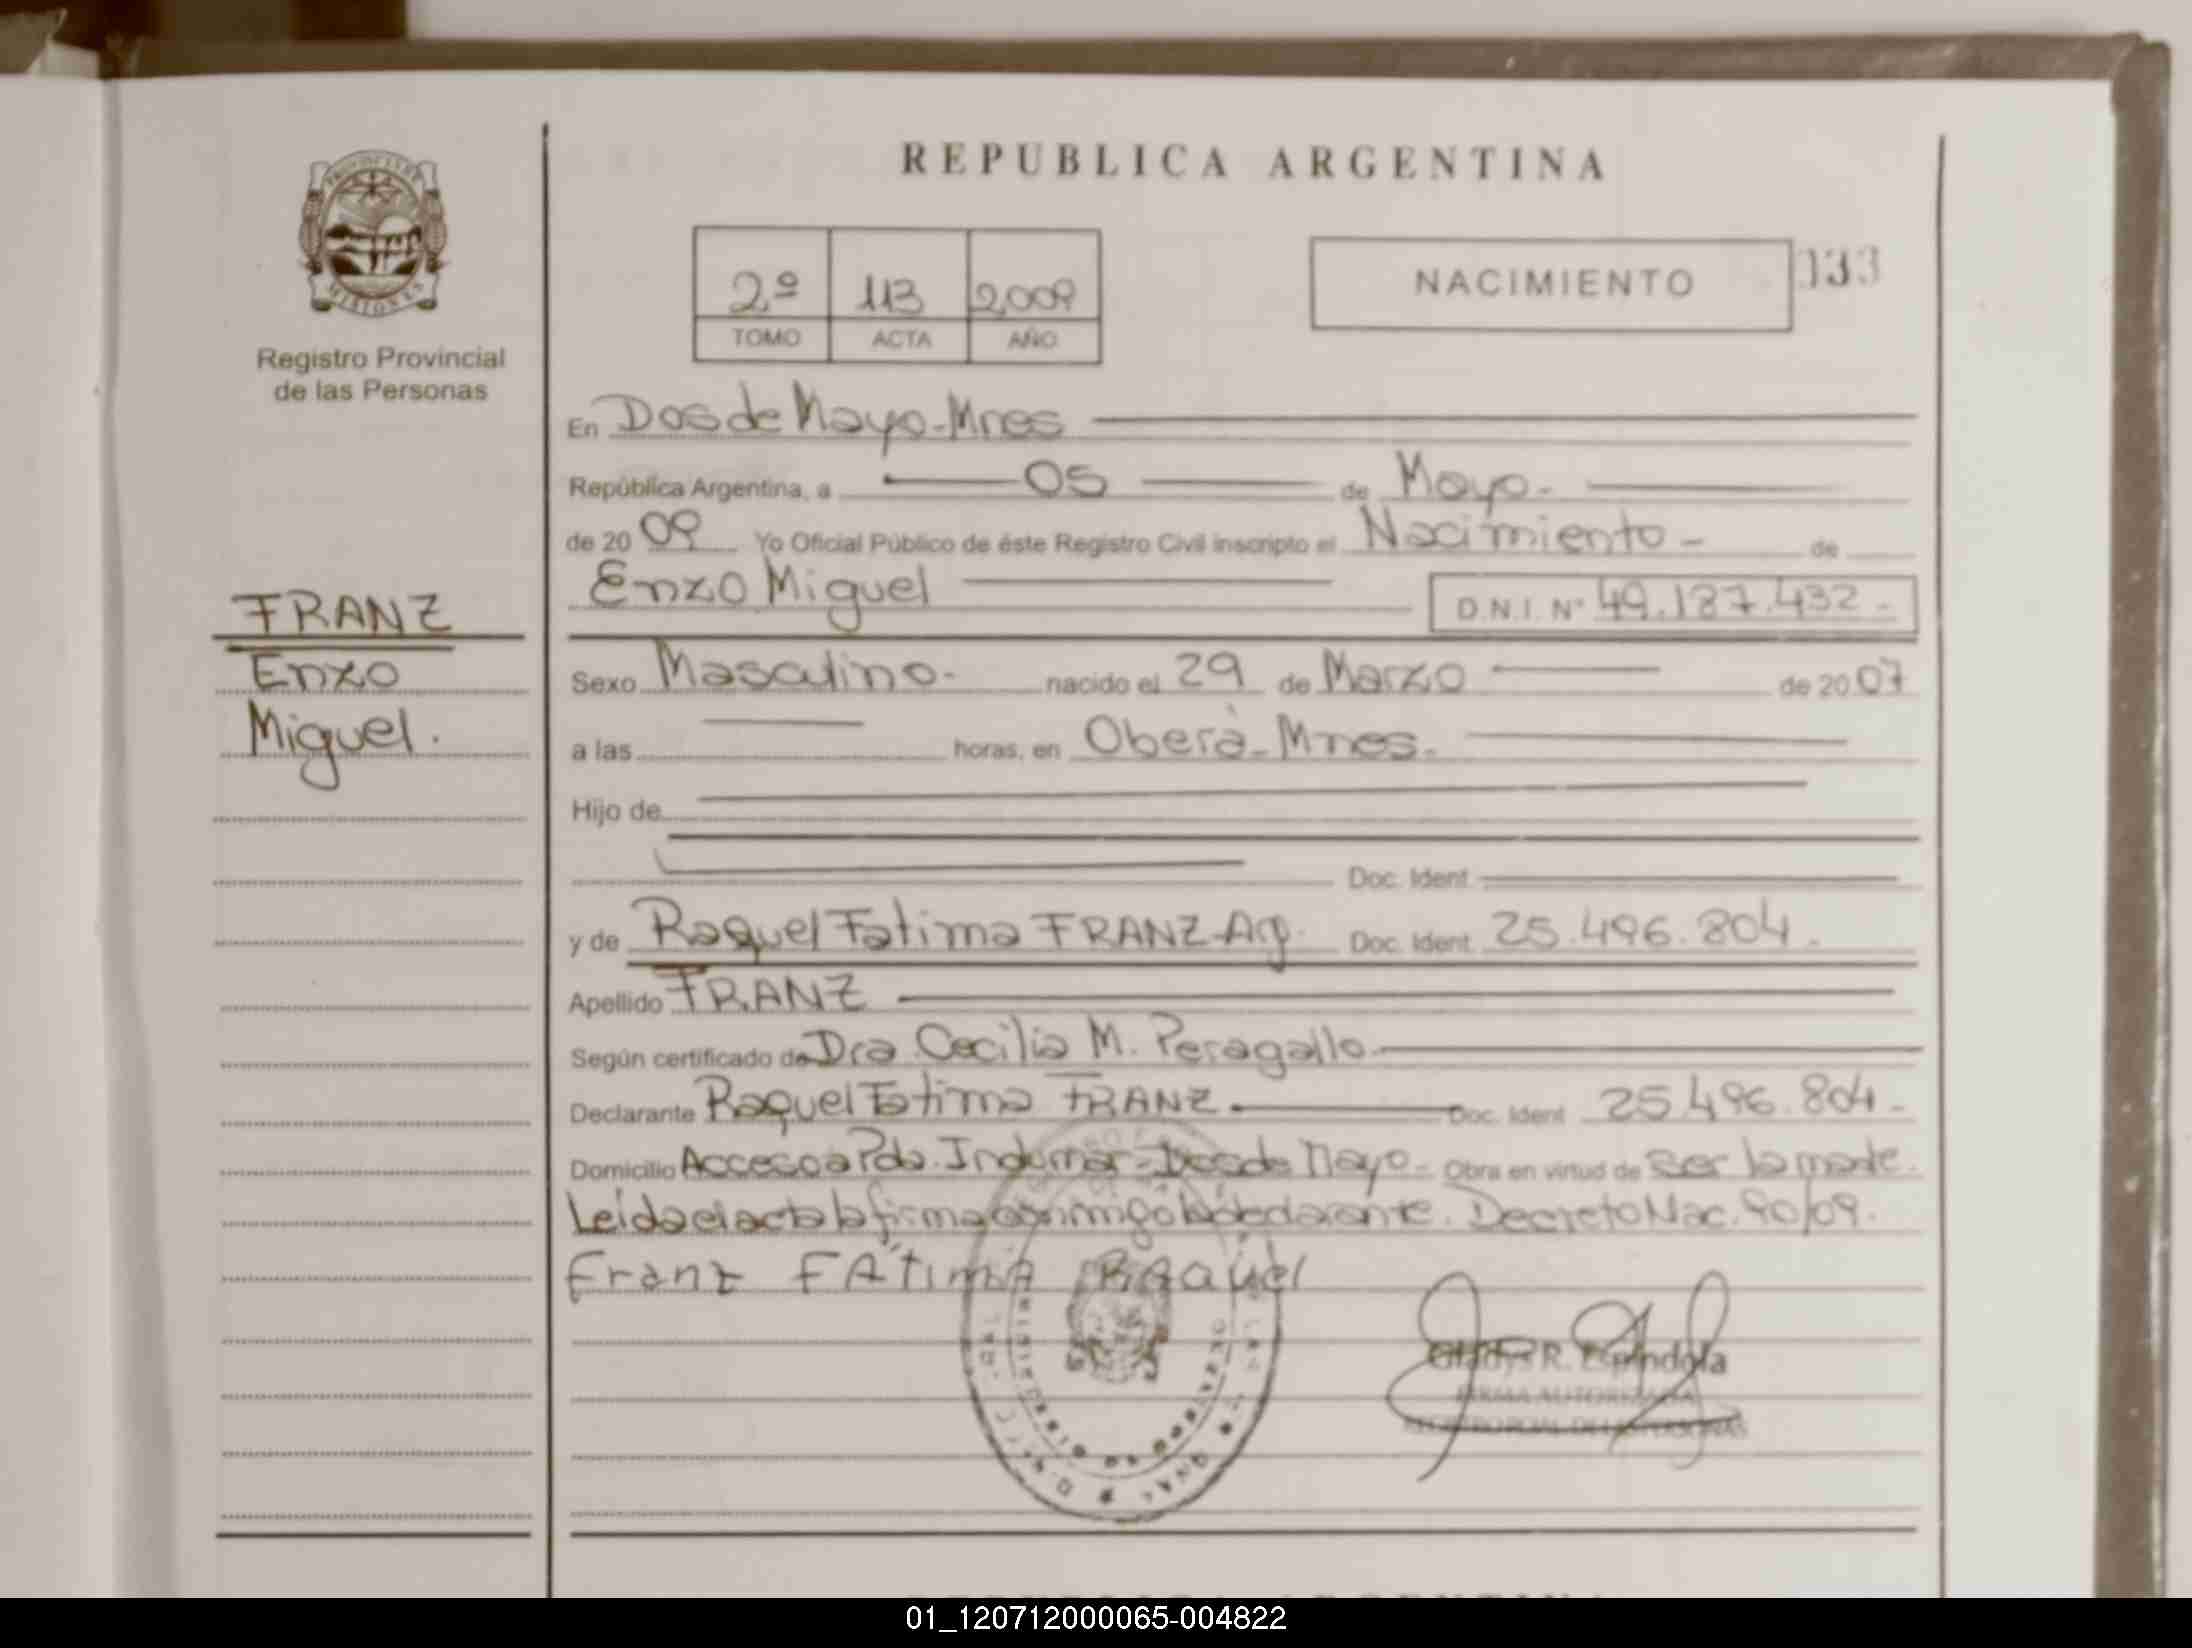 REPUBLICA ARGENTINA
PROVINCIA DE
MISIONES
Registro Provincial
de las Personas
2º 113 2009
TOMO ACTA AÑO
NACIMIENTO 133
En Dos de Mayo-Mnes
República Argentina, a 05 de Mayo-
de 20 09 Yo Oficial Público de éste Registro Civil inscripto el Nacimiento - de
Enzo Miguel D.N.I. Nº 49.187.432-
FRANZ
Enzo
Miguel.
Sexo Masculino- nacido el 29 de Marzo de 20 07
a las horas, en Oberà-Mnes.
Hijo de
Doc. Ident.
y de Raquel Fatima FRANZ-Arg. Doc. Ident. 25.496.804.
Apellido FRANZ
Según certificado de Dra. Cecilia M. Peragallo
Declarante Raquel Fatima FRANZ Doc. Ident. 25.496.804-
Domicilio Acceso a Pda. Indumar-Dos de Mayo- Obra en virtud de ser la madre.
Leída el acta la firma conmigo la declarante. Decreto Nac. 90/09.
Franz FÁtimA RAquel
Gladys R. Espindola
FIRMA AUTORIZADA
REGISTRO PCIAL. DE LAS PERSONAS
01_120712000065-004822